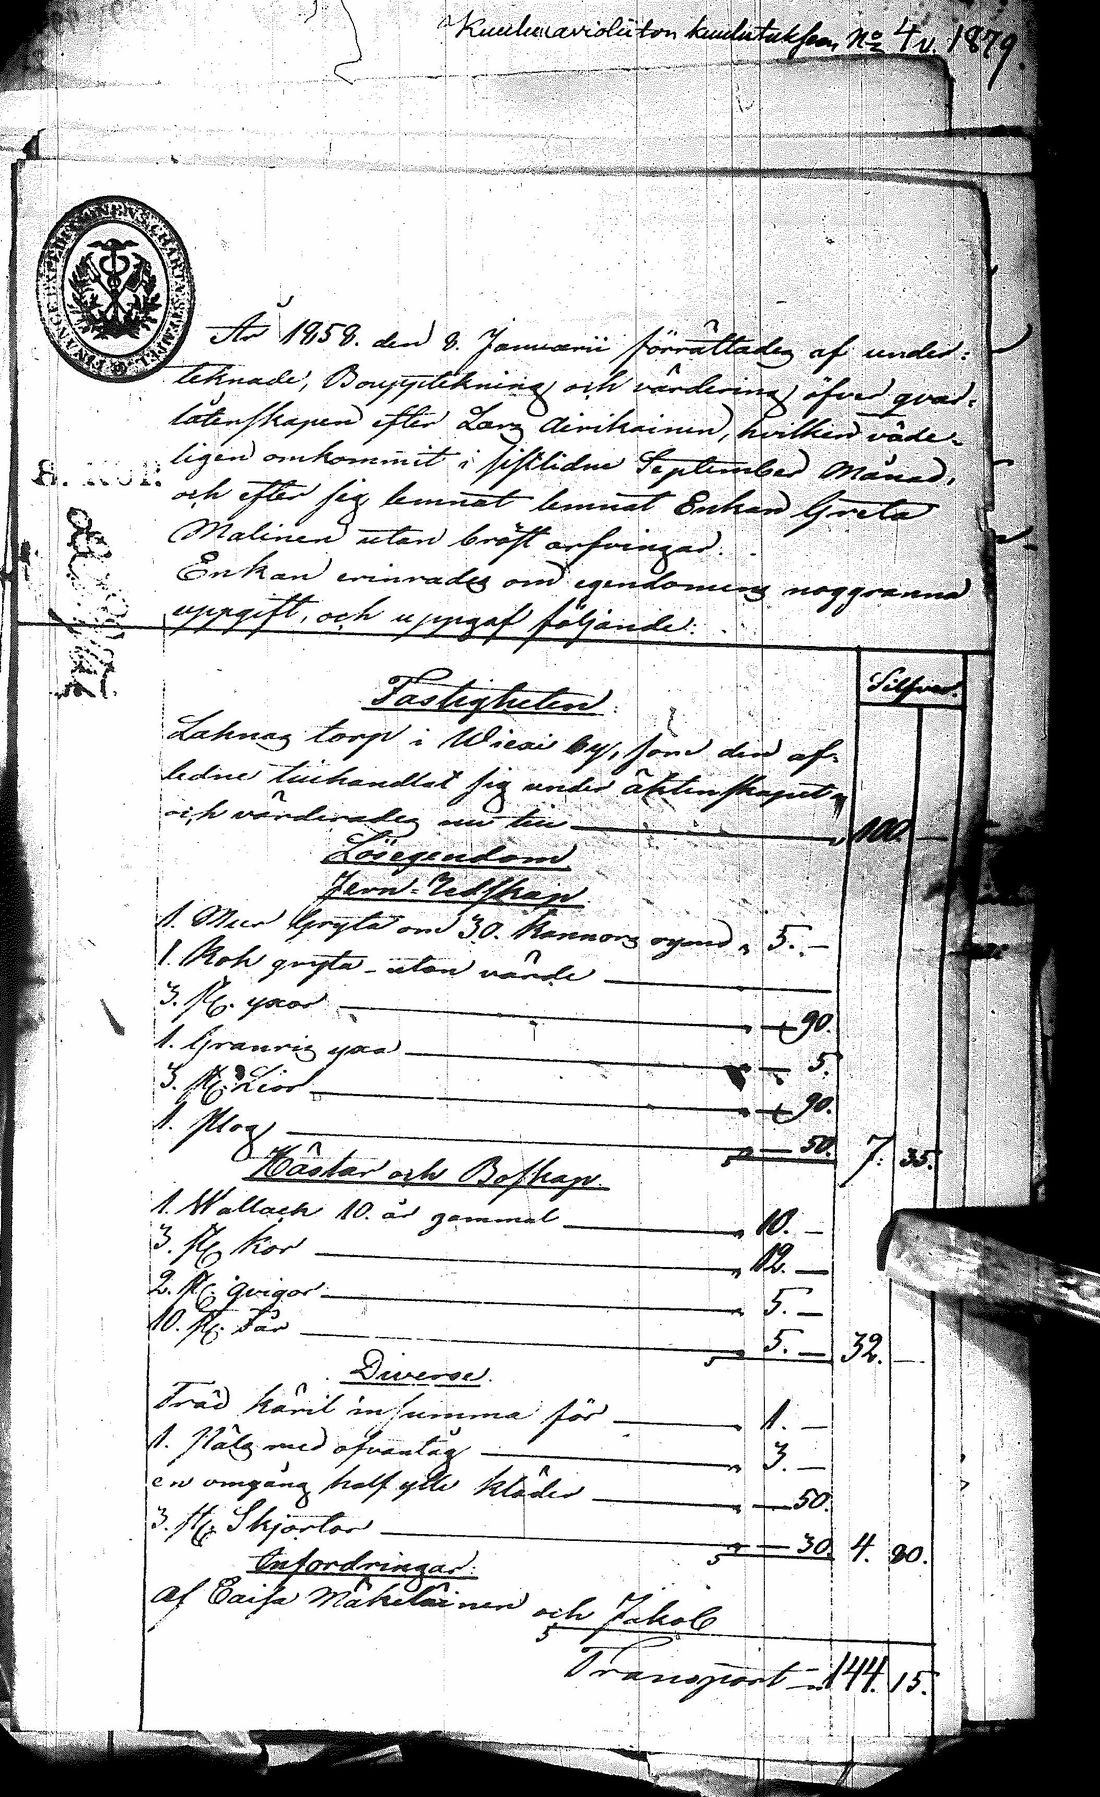 Kuulu kuulutuksen No 4 v. 1879.
FINANCE EXPEDITIONENS CHARTÆ STEMPEL
År 1858. den 8. Januarii förrättades af under-
teknade, Bouppteckning och värdering öfver qvar-
låtenskapen efter Lars Airikainen, hvilken våde-
ligen omkommit i sistlidne September Månad,
och efter sig lemnat lemnat Enkan Greta
Malinen utan bröst arfvingar.
Enkan erinrades om egendomens noggranna
uppgift, och uppgaf följande:
Silfver.
Fastigheten
torp i by, som den af-
ledne tillhandlat sig under äktenskapet
och värderades nu till 100. —
Lösegendom
Jern-Redskap
1. Mur Gryta om 30. kannors rymd " 5. —
1. Kok gryta utan värde
3. st. yxor " — 90.
1. Granris yxa " — 5.
3. st. Lior " — 90.
1. Plog " — 50. 7. 35.
Hästar och Boskap
1. Wallack 10. år gammal " 10. —
3. st. kor " 12. —
2. st. qvigor " 5. —
10. st. Får " 5. — 32. —
Diverse
Träd käril in summa för " 1. —
1. Päls med ofvantåg " 3. —
en omgång half ylle kläder " — 50.
3. st. Skjortor " — 30. 4. 80.
Infordringar
af Caisa Mäkeläinen och Jakob
Transport 144. 15.